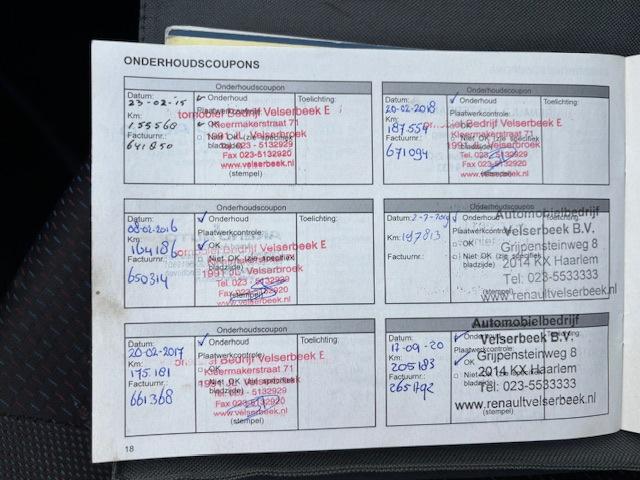 ONDERHOUDSCOUPONS
Onderhoudscoupon
Datum: Onderhoud Toelichting:
23-02-15 Plaatwerkcontrole:
Km: OK
155560
Factuurnr.: Niet OK (zie specifiek bladzijde)
641850
tomobiel Bedrijf Velserbeek E
Kleermakerstraat 71
1991 JL Velserbroek
Tel. 023 - 5132929
Fax 023-5132920
www.velserbeek.nl
(stempel)
Onderhoudscoupon
Datum: Onderhoud Toelichting:
08-02-2016 Plaatwerkcontrole:
Km: OK
164186
Factuurnr.: Niet OK (zie specifiek bladzijde)
650314
Bedrijf Velserbeek E
1991 JL Velserbroek
Tel. 023 - 5132929
Fax 023-5132920
www.velserbeek.nl
(stempel)
Onderhoudscoupon
Datum: Onderhoud Toelichting:
20-02-2017 Plaatwerkcontrole:
Km: OK
175181
Factuurnr.: Niet OK (zie specifiek bladzijde)
661368
Bedrijf Velserbeek E
Kleermakerstraat 71
1991 JL Velserbroek
Tel. 023 - 5132929
Fax 023-5132920
www.velserbeek.nl
(stempel)
Onderhoudscoupon
Datum: Onderhoud Toelichting:
20-02-2018 Plaatwerkcontrole:
Km: OK
187554
Factuurnr.: Niet OK (zie specifiek bladzijde)
671094
Bedrijf Velserbeek E
Kleermakerstraat 71
1991 JL Velserbroek
Tel. 023 - 5132929
Fax 023-5132920
www.velserbeek.nl
(stempel)
Onderhoudscoupon
Datum: Onderhoud
2-7-2019
Km:
197813
Factuurnr.: Niet OK (zie specifiek bladzijde)
Automobielbedrijf
Velserbeek B.V.
Grijpensteinweg 8
2014 KX Haarlem
Tel: 023-5533333
www.renaultvelserbeek.nl
(stempel)
Onderhoudscoupon
Datum: Onderhoud Toelichting:
17-09-20 Plaatwerkcontrole:
Km: OK
205183
Factuurnr.: Niet OK (zie specifiek bladzijde)
Automobielbedrijf
Velserbeek B.V.
Grijpensteinweg 8
2014 KX Haarlem
Tel: 023-5533333
www.renaultvelserbeek.nl
(stempel)
18